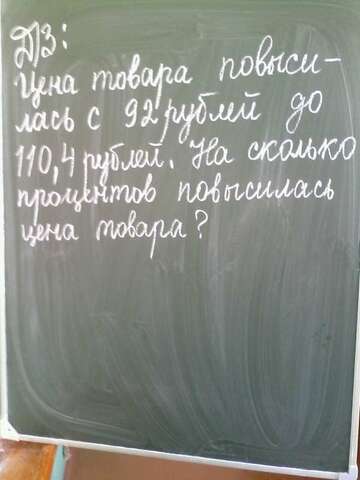 Д/З:
Цена товара повыси-
лась с 92 рублей до
110,4 рублей. На сколько
процентов повысилась
цена товара?